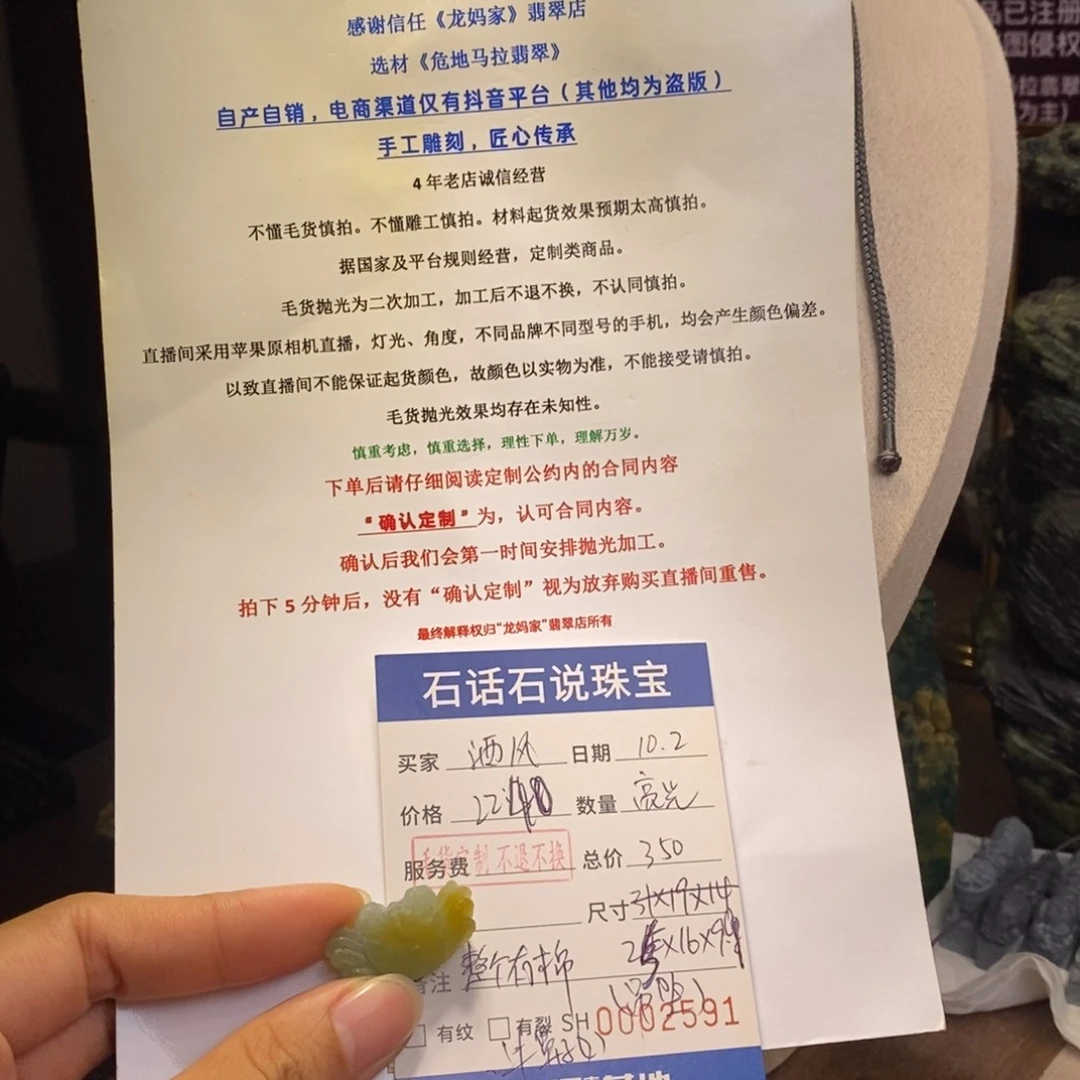 感谢信任《龙妈家》翡翠店
选材《危地马拉翡翠》
自产自销，电商渠道仅有抖音平台（其他均为盗版）
手工雕刻，匠心传承
4年老店诚信经营
不懂毛货慎拍。不懂雕工慎拍。材料起货效果预期太高慎拍。
据国家及平台规则经营，定制类商品。
毛货抛光为二次加工，加工后不退不换，不认同慎拍。
直播间采用苹果原相机直播，灯光、角度，不同品牌不同型号的手机，均会产生颜色偏差。
以致直播间不能保证起货颜色，故颜色以实物为准，不能接受请慎拍。
毛货抛光效果均存在未知性。
慎重考虑，慎重选择，理性下单，理解万岁。
下单后请仔细阅读定制公约内的合同内容
“确认定制”为，认可合同内容。
确认后我们会第一时间安排抛光加工。
拍下5分钟后，没有“确认定制”视为放弃购买直播间重售。
最终解释权归“龙妈家”翡翠店所有
石话石说珠宝
买家 洒风 日期 10.2
价格 数量 高光
服务费 毛货定制 不退不换 总价 350
尺寸 31×19×14
备注 整个有棉
有纹 有裂 SH 0002591
品已注册
图侵权
拉翡翠
为主）